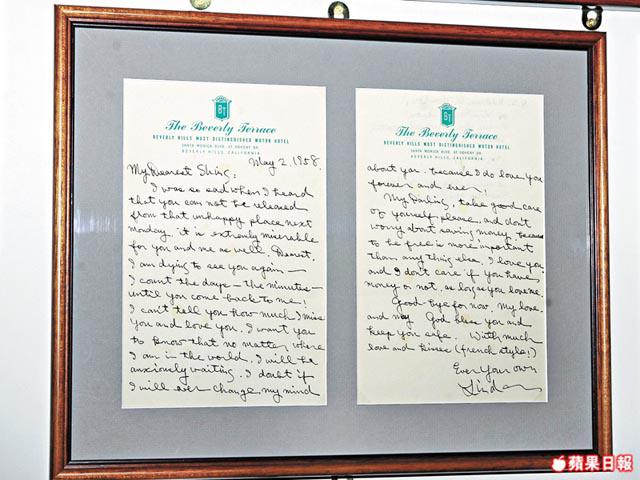 BT
The Beverly Terrace
BEVERLY HILLS MOST DISTINGUISHED MOTOR HOTEL
SANTA MONICA BLVD. AT DOHENY DR.
BEVERLY HILLS, CALIFORNIA
May 2, 1958.
My Dearest Shing:
I was so sad when I heard
that you can not be released
from that unhappy place next
monday. it is extremly miserable
for you and me as well. Dearest,
I am dying to see you again —
I count the days — the minutes —
until you come back to me!
I can't tell you how much I miss
you and love you. I want you
to know that no matter where
I am in the world. I will be
anxiously waiting. I doubt if
I will ever change, my mind
BT
The Beverly Terrace
BEVERLY HILLS MOST DISTINGUISHED MOTOR HOTEL
SANTA MONICA BLVD. AT DOHENY DR.
BEVERLY HILLS, CALIFORNIA
about you. because I do love you
forever and ever!
My Darling, take good care
of yourself please, and don't
worry about saving money, because
to be free is more important
than any thing else. I love you
and I don't care if you have
money or not, as long as you love me.
Good bye for now, my love.
and may God bless you and
keep you safe. With much
love and kisses (french style!)
Ever your own
Linda
蘋果日報